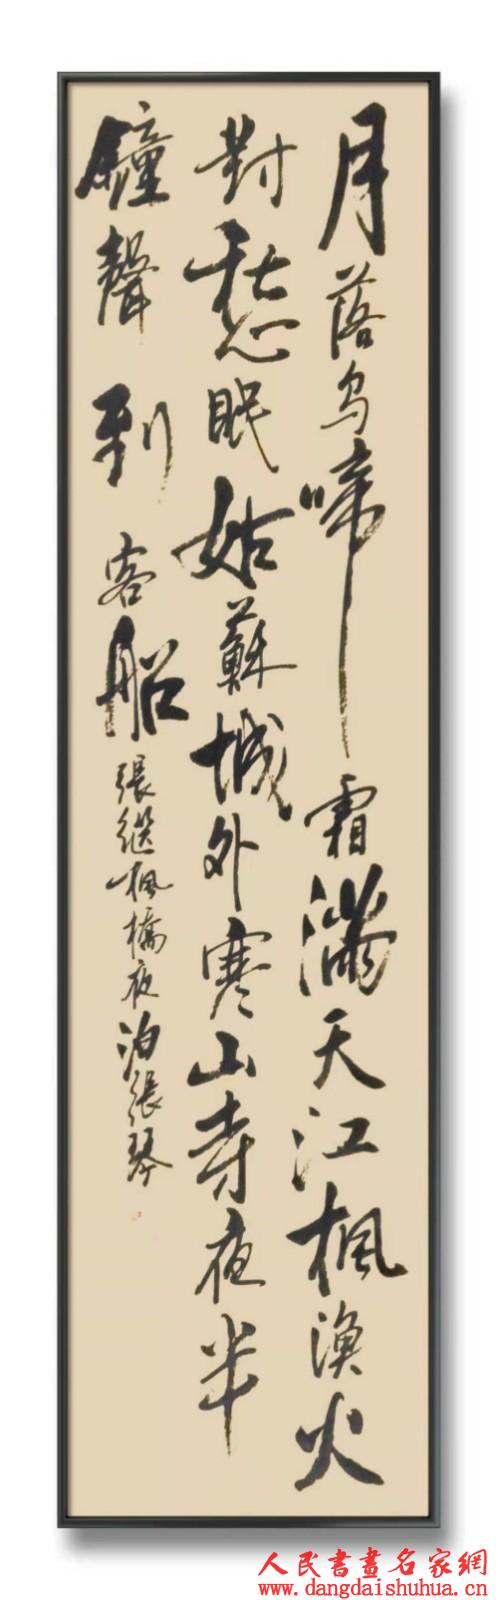 月落乌啼霜满天江枫渔火
對愁眠姑蘇城外寒山寺夜半
鐘聲到客船
張继枫橋夜泊張琴
人民書畫名家網
www.dangdaishuhua.cn